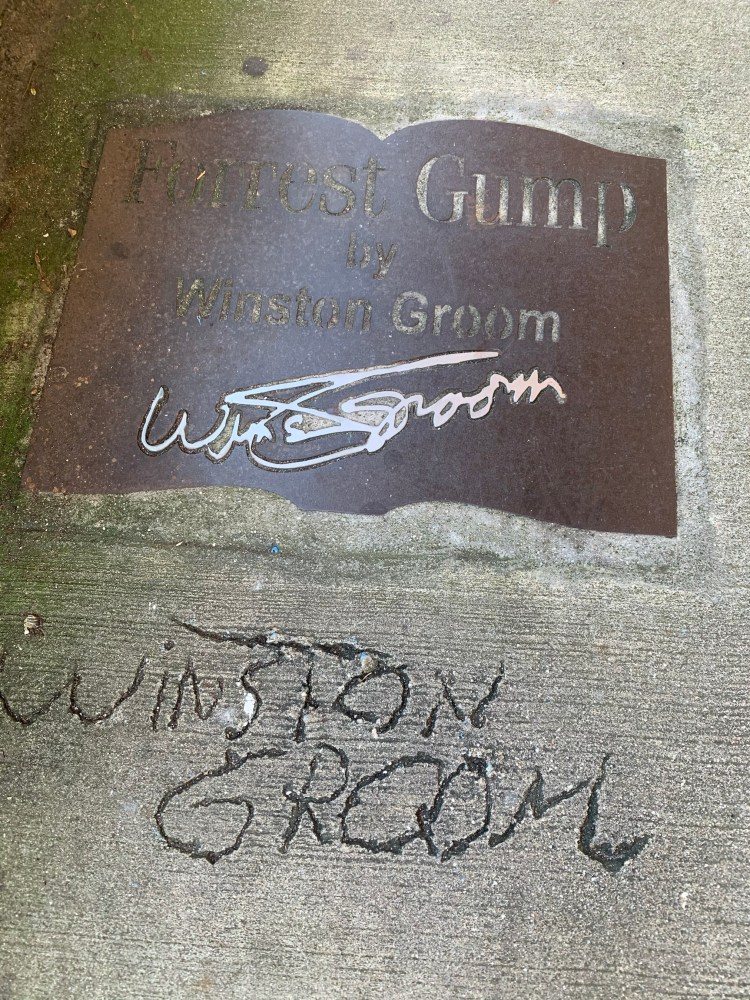 Forrest Gump
by
Winston Groom
Winston Groom
WINSTON
GROOM